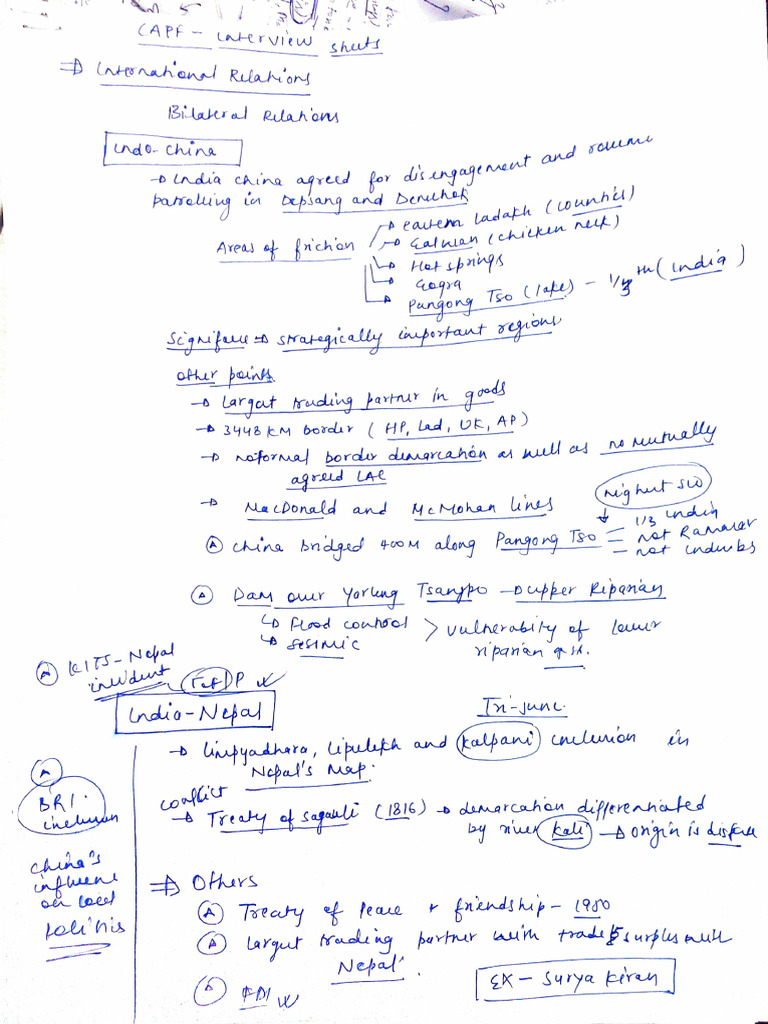 CAPF - Interview sheets
⇒ International Relations
Bilateral Relations
Indo-China
→ India china agreed for disengagement and resume
patrolling in Depsang and Demchok
Areas of friction
→ Eastern Ladakh (
→ Galwan (chicken neck)
→ Hot springs
→ Gogra
→ Pangong Tso (lake) - 1/3 th (India)
Significance ⇒ strategically important regions
other points
→ Largest trading partner in goods
→ 3448 KM border (HP, Lad, UK, AP)
→ no formal border demarcation as well as no mutually
agreed LAC
→ MacDonald and McMohan lines
Highest SW
(A) China bridged 400M along Pangong Tso
= 1/3 India
- not Ramsar
- not Indus bs
(A) Dam over Yarlung Tsangpo → upper Riparian
↳ flood control
↳ seismic
> vulnerability of lower
riparian
(A) KIIT-Nepal
incident
India-Nepal
Tri-junc.
→ Limpyadhara, Lipulekh and Kalpani inclusion in
Nepal's Map.
conflict
→ Treaty of Sagauli (1816) → demarcation differentiated
by river Kali → origin is
(A)
BRI
inclusion
China's
influence
on local
politics
⇒ Others
(A) Treaty of Peace & friendship - 1950
(A) Largest trading partner with trade surplus with
Nepal.
(A) FDI
EX - Surya Kiran